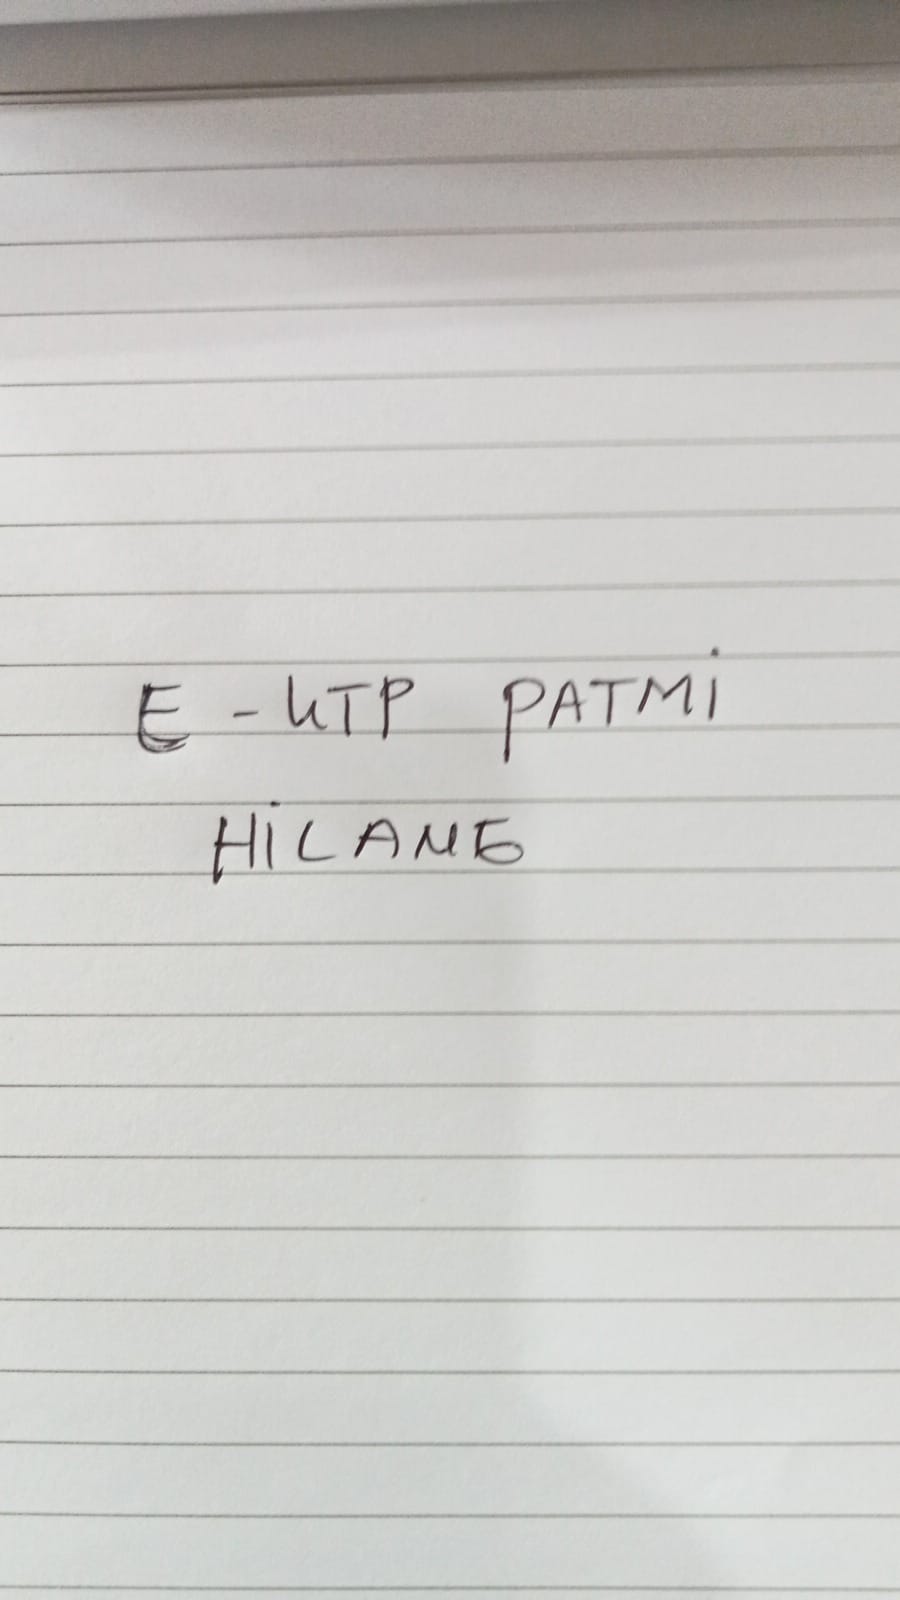 E-KTP PATMI
HILANG